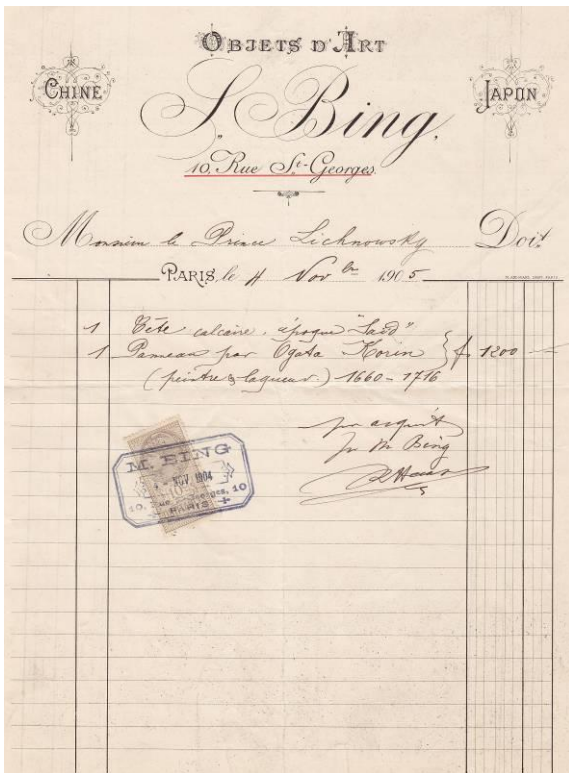 OBJETS D'ART
CHINE
JAPON
S. Bing.
10, Rue St-Georges.
Monsieur le Prince Lichnowsky Doit
PARIS, le 4 Nov bre 1905
1 Tête calcaire, époque "Saïs"
1 Panneau par Ogata Korin } f. 1200 —
(peintre & laqueur.) 1660-1716
pr acquit
pr M Bing
M. BING
NOV 1904
10, Rue St Georges, 10
PARIS